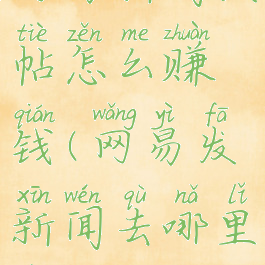 tiè zěn me zhuàn
帖怎么赚
qián wǎng yì fā
钱(网易发
xīn wén qù nǎ lǐ
新闻去哪里